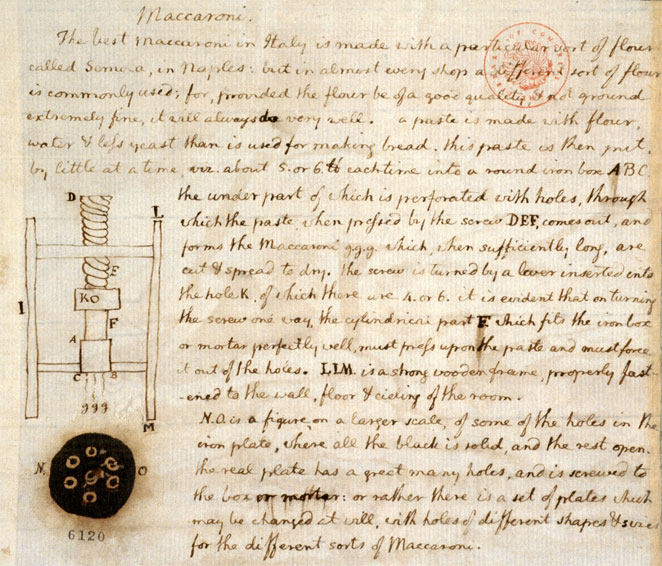 Maccaroni.
The best maccaroni in Italy is made with a particular sort of flour
called Semola, in Naples: but in almost every shop a different sort of flour
is commonly used; for, provided the flour be of a good quality, & not ground
extremely fine, it will always do very well. a paste is made with flour,
water & less yeast than is used for making bread. this paste is then put,
by little at a time, viz. about 5. or 6. ℔ each time into a round iron box ABC
the under part of which is perforated with holes, through
which the paste, when pressed by the screw DEF, comes out, and
forms the Maccaroni g.g.g. which, when sufficiently long, are
cut & spread to dry. the screw is turned by a lever inserted into
the hole K, of which there are 4. or 6. it is evident that on turning
the screw one way, the cylindrical part F. which fits the iron box
or mortar perfectly well, must press upon the paste and must force
it out of the holes. LLM. is a strong wooden frame, properly fast-
-ened to the wall, floor & cieling of the room.
N.O. is a figure, on a larger scale, of some of the holes in the
iron plate, where all the black is solid, and the rest open.
the real plate has a great many holes, and is screwed to
the box or mortar: or rather there is a set of plates which
may be changed at will, with holes of different shapes & sizes
for the different sorts of Maccaroni.
D
L
I
E
KO
F
A
C
B
ggg
M
N
O
6120